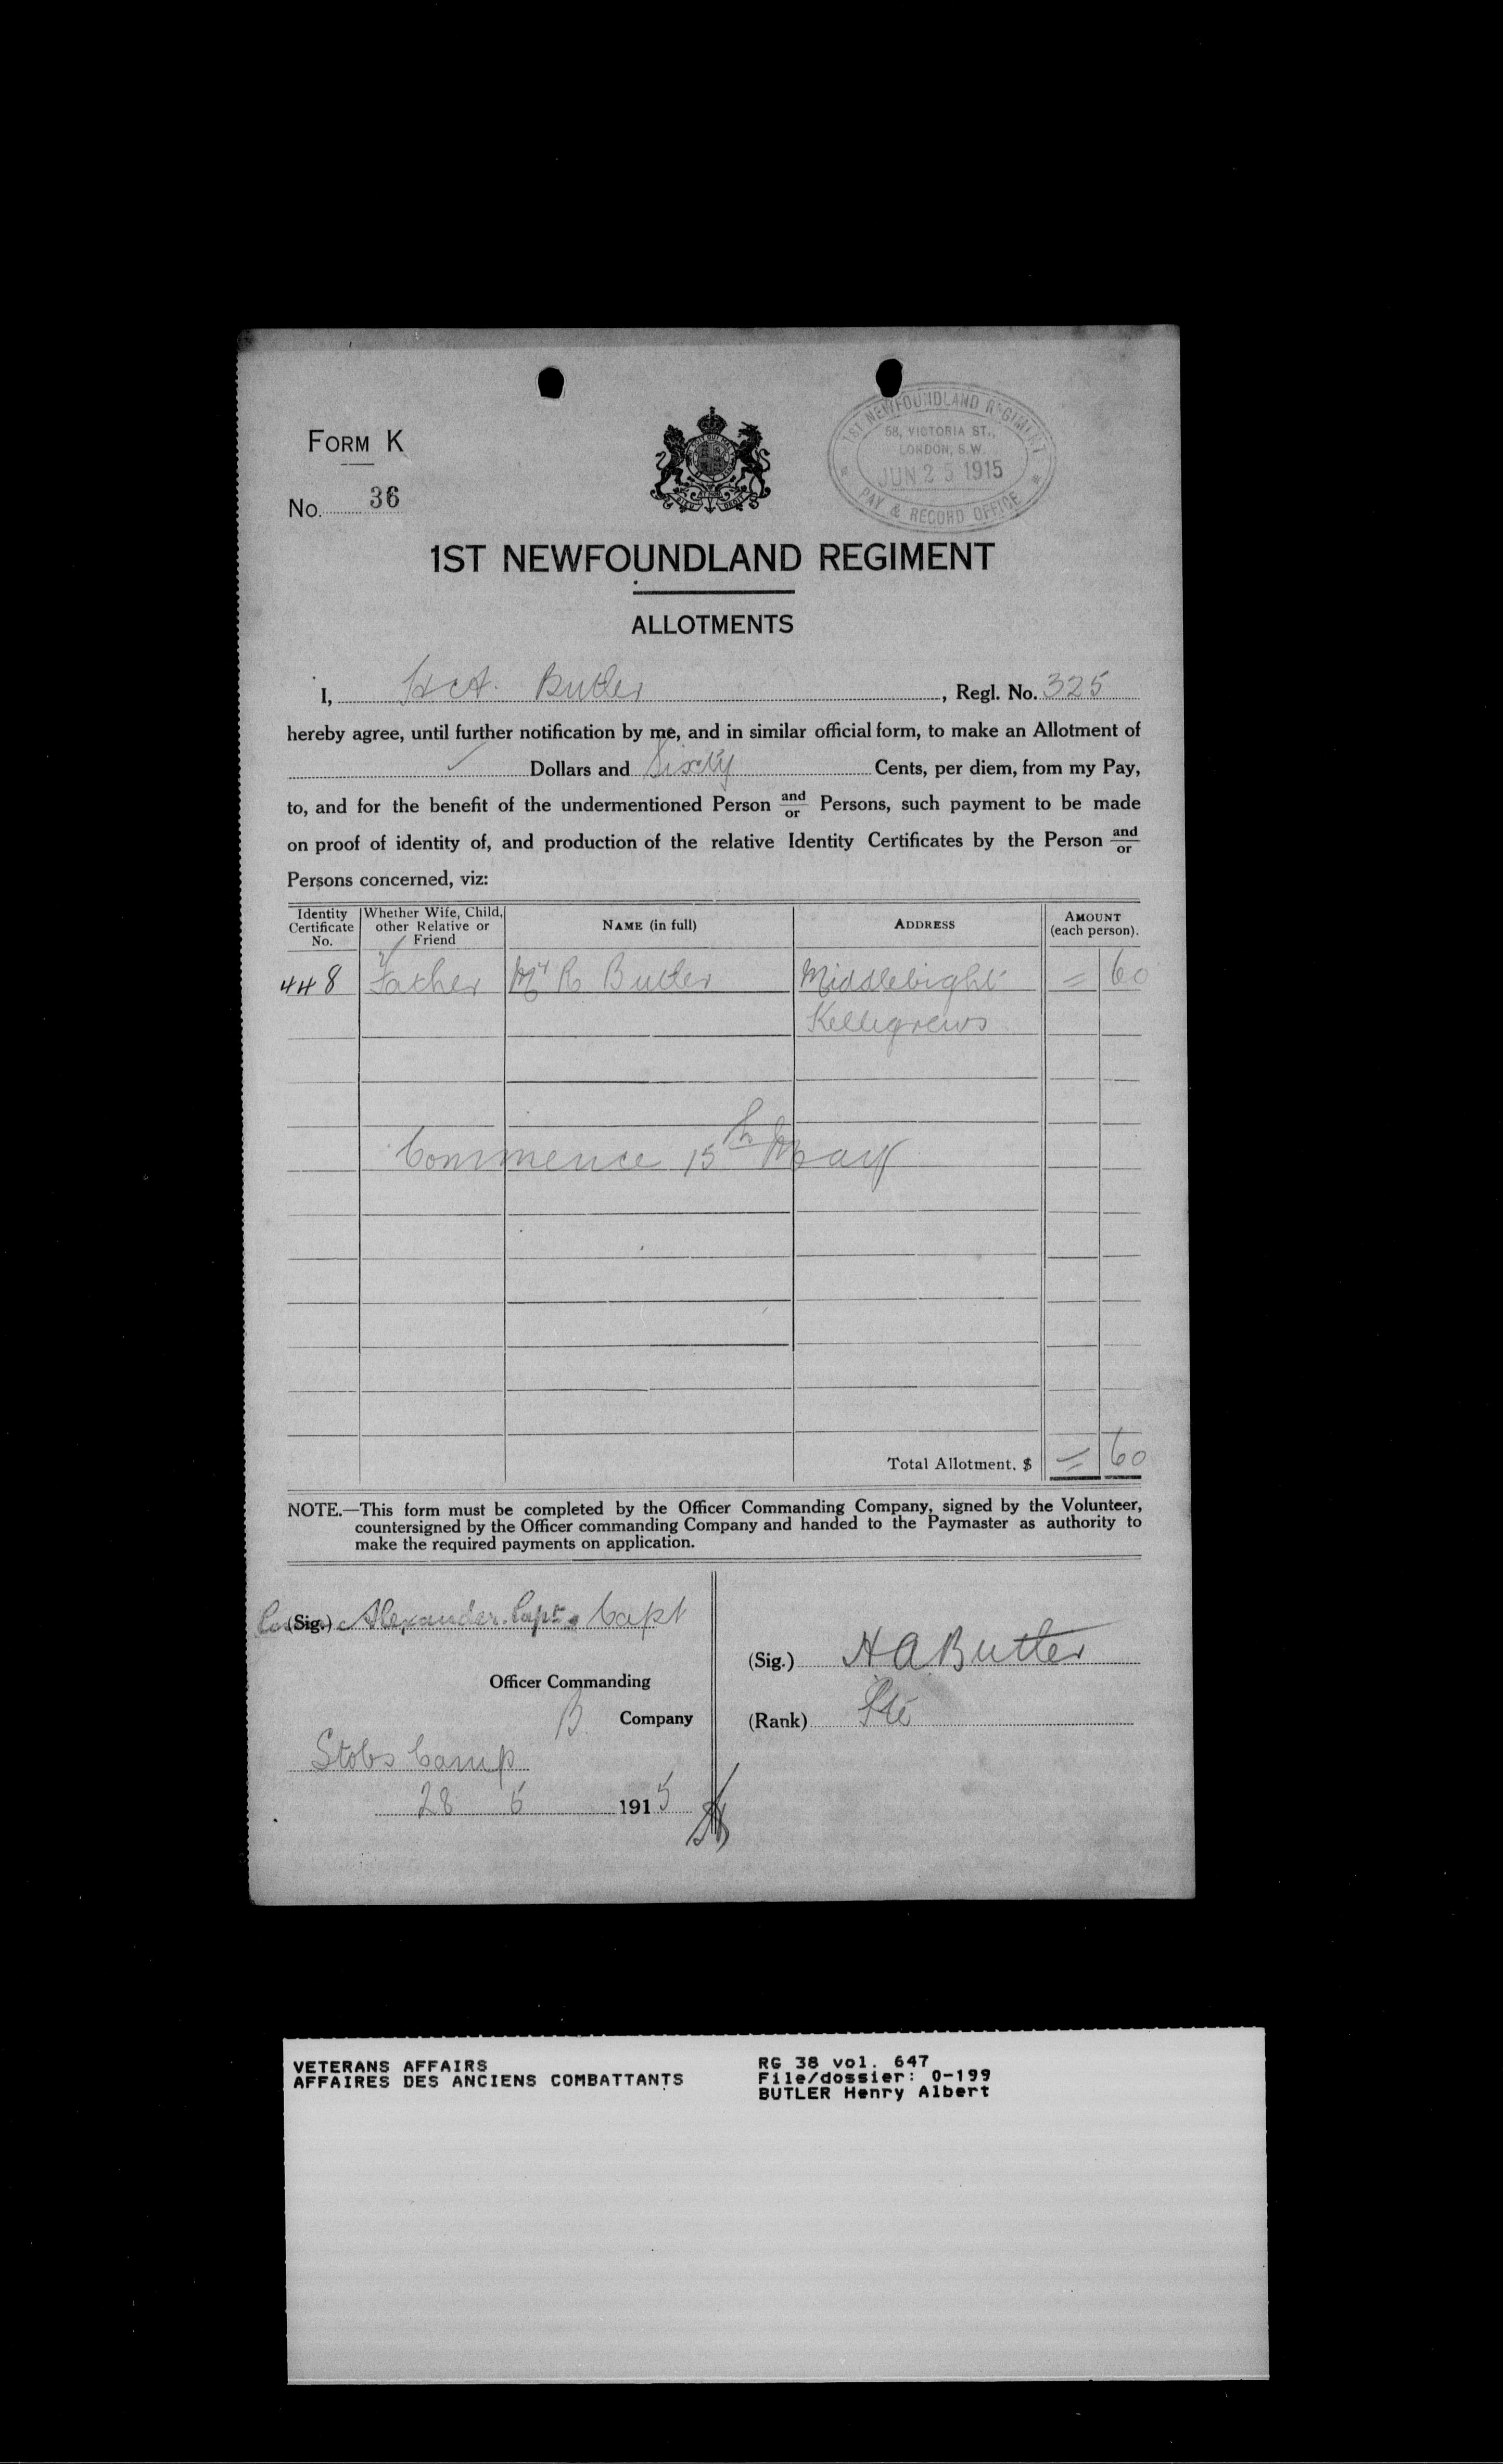 FORM K
No. 36
1ST NEWFOUNDLAND REGIMENT
58, VICTORIA ST.,
LONDON, S.W.
JUN 25 1915
PAY & RECORD OFFICE
1ST NEWFOUNDLAND REGIMENT
ALLOTMENTS
I, H A. Butler, Regl. No. 325
hereby agree, until further notification by me, and in similar official form, to make an Allotment of
Dollars and Sixty Cents, per diem, from my Pay,
to, and for the benefit of the undermentioned Person and/or Persons, such payment to be made
on proof of identity of, and production of the relative Identity Certificates by the Person and/or
Persons concerned, viz:
Identity Certificate No. Whether Wife, Child, other Relative or Friend NAME (in full) ADDRESS AMOUNT (each person).
448 Father Mr R Butler Middlebight = 60
Kelligrews
Commence 15th May
Total Allotment. $ = 60
NOTE.—This form must be completed by the Officer Commanding Company, signed by the Volunteer,
countersigned by the Officer commanding Company and handed to the Paymaster as authority to
make the required payments on application.
(Sig.) Alexander. Capt. Capt
Officer Commanding
B. Company
Stobs Camp
28 5 1915
(Sig.) H A Butler
(Rank) Pte
VETERANS AFFAIRS
AFFAIRES DES ANCIENS COMBATTANTS
RG 38 vol. 647
File/dossier: 0-199
BUTLER Henry Albert